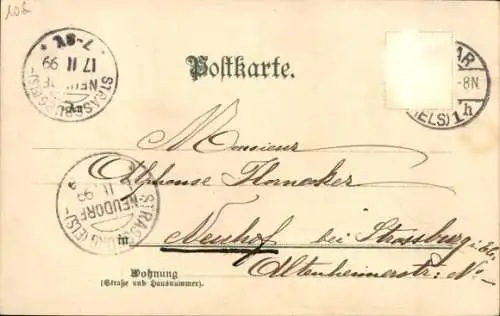 106
7-8V.
17 11 99
STRASSBURG (ELS)
NEUDORF
Postkarte.
AR
-8N
(ELS) 1h
An
Monsieur
Alphonse
STRASSBURG (ELS)
NEUDORF
11 99
in Neuhof bei Strassburg i. Els.
Altenheimerstr: No
Wohnung
(Straße und Hausnummer).